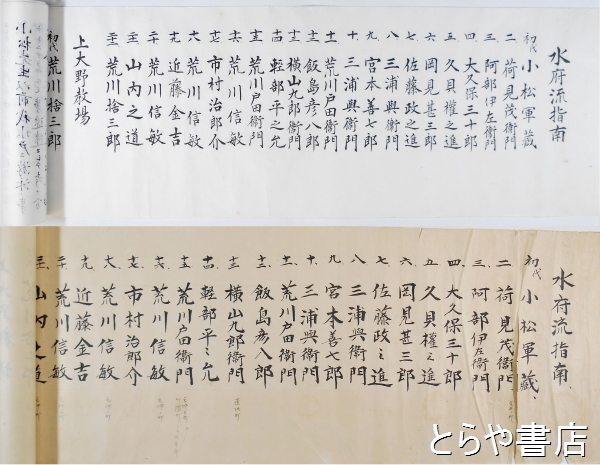 水府流指南
初代 小松軍藏
二 荷見茂衛門
三 阿部伊左衛門
四 大久保三十郎
五 久貝權之進
六 岡見甚三郎
七 佐藤政之進
八 三浦與衛門
九 宮本善七郎
十 三浦與衛門
十一 荒川戸田衛門
十二 飯島彦八郎
十三 横山九郎衛門
十四 軽部平之允
十五 荒川戸田衛門
十六 荒川信敏
十七 市村治郎介
十八 荒川信敏
十九 近藤金吉
二十 荒川信敏
二十一 山内之道
二十二 荒川捨三郎
上大野教場
初代 荒川捨三郎
水府流指南、
初代 小松軍藏、
二 荷見茂衛門
三、 阿部伊左衛門
四、 大久保三十郎
五 久貝權之進
六、 岡見甚三郎
七、 佐藤政之進
八 三浦與衛門
九 宮本善七郎
十、 三浦與衛門
十一、 荒川戸田衛門
十二、 飯島彦八郎
十三 横山九郎衛門
十四 軽部平之允
十五 荒川戸田衛門
十六、 荒川信敏
十七 市村治郎介
十八、 荒川信敏
十九、 近藤金吉
二十、 荒川信敏
二十一、 山内之道
とらや書店